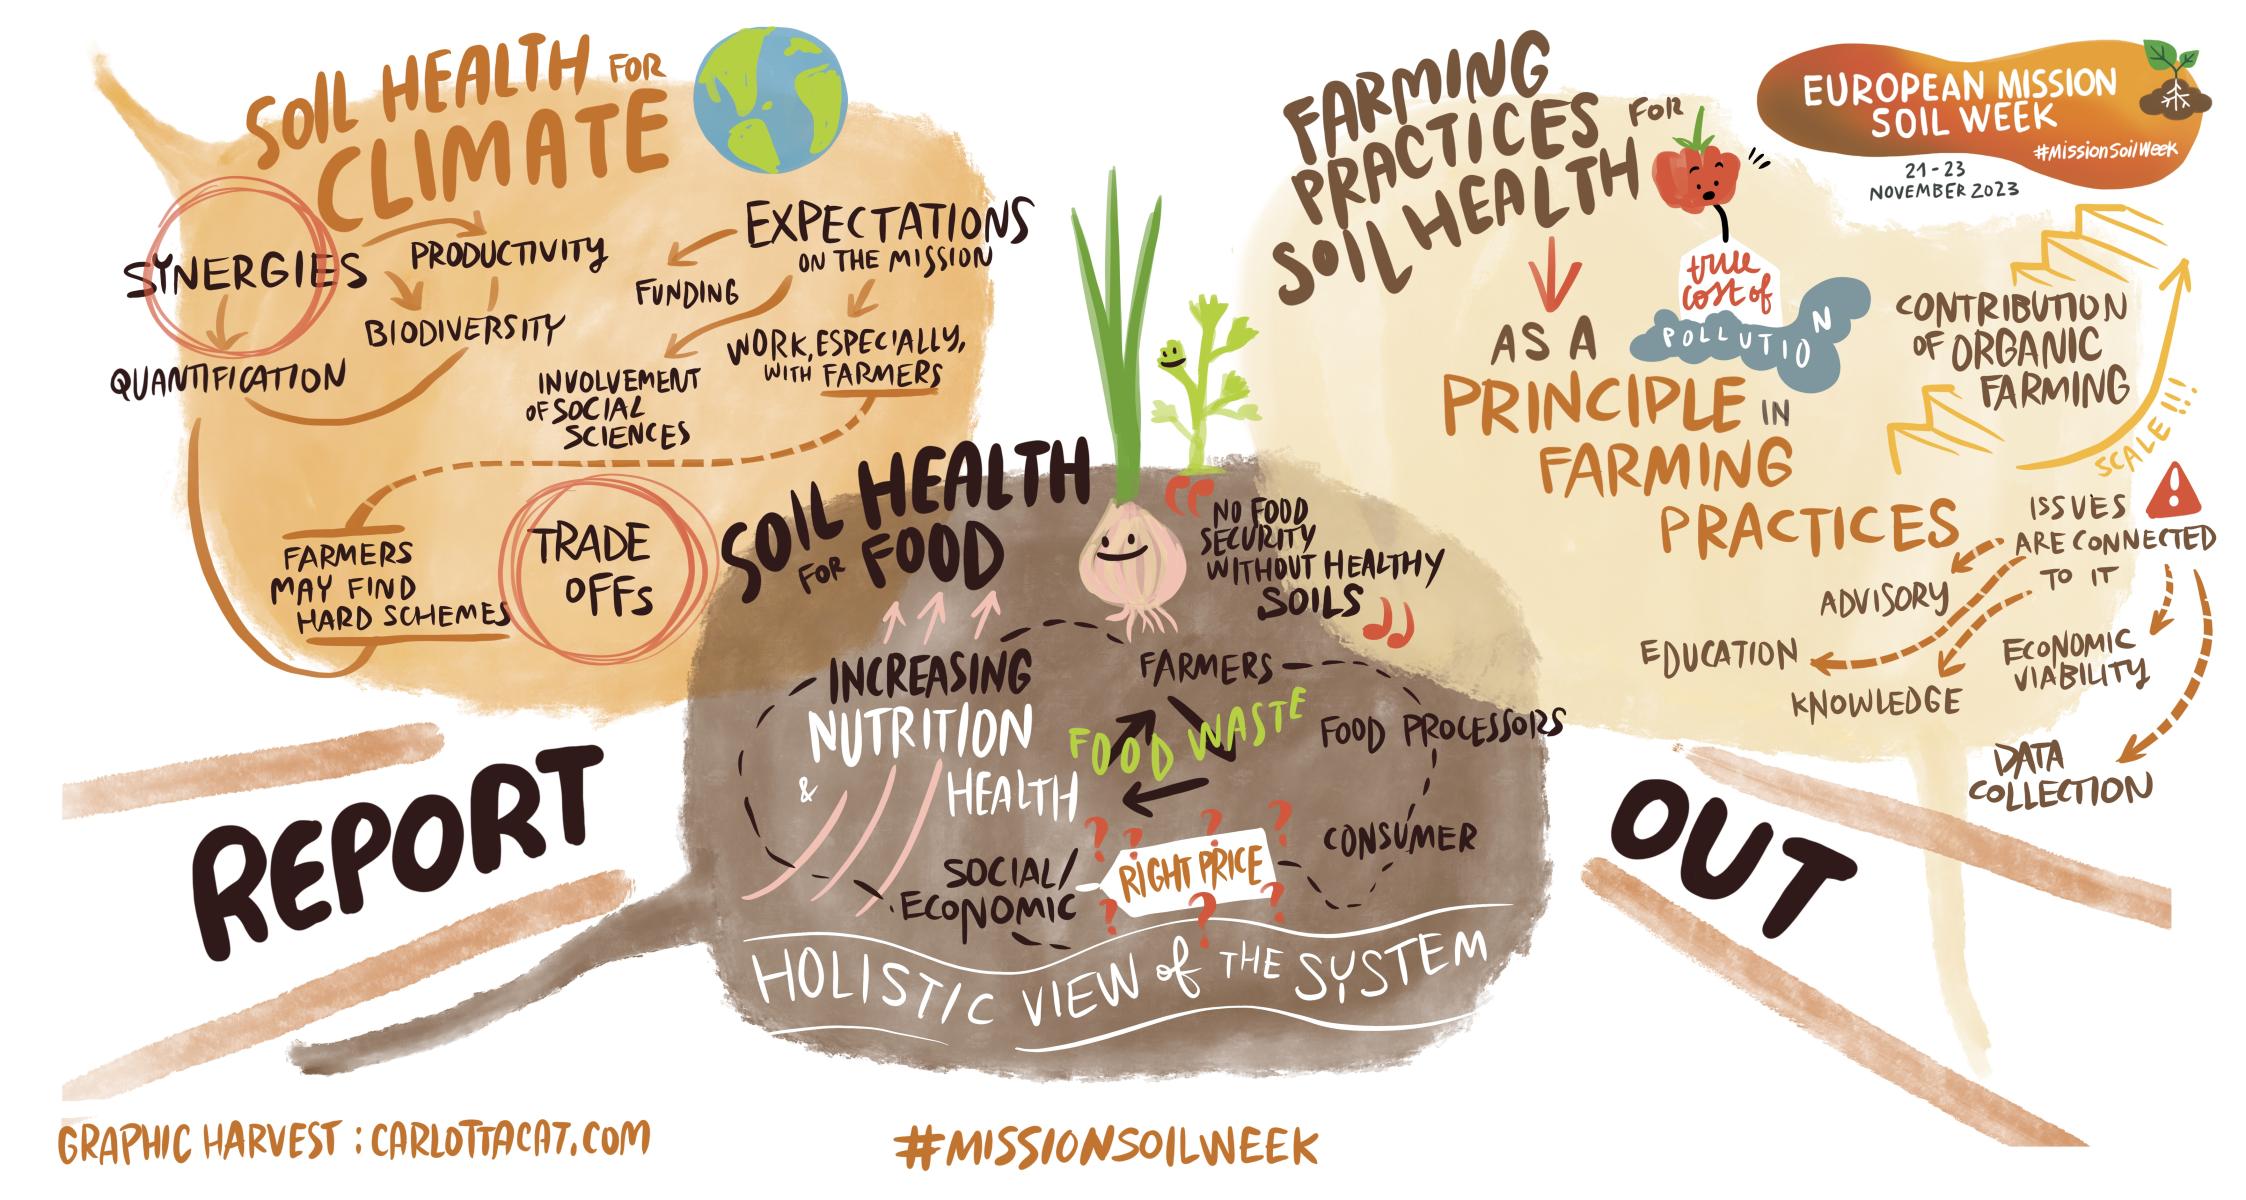 SOIL HEALTH FOR
CLIMATE
SYNERGIES
PRODUCTIVITY
BIODIVERSITY
QUANTIFICATION
EXPECTATIONS
ON THE MISSION
FUNDING
INVOLVEMENT
OF SOCIAL
SCIENCES
WORK, ESPECIALLY,
WITH FARMERS
FARMERS
MAY FIND
HARD SCHEMES
TRADE
OFFs
SOIL HEALTH
FOR FOOD
“ NO FOOD
SECURITY
WITHOUT HEALTHY
SOILS ”
INCREASING
NUTRITION
& HEALTH
FARMERS
FOOD WASTE
FOOD PROCESSORS
CONSUMER
? ? ? ?
RIGHT PRICE
? ? ?
SOCIAL/
ECONOMIC
HOLISTIC VIEW of THE SYSTEM
FARMING
PRACTICES FOR
SOIL HEALTH
true
cost of
POLLUTION
AS A
PRINCIPLE IN
FARMING
PRACTICES
EUROPEAN MISSION
SOIL WEEK
#MissionSoilWeek
21-23
NOVEMBER 2023
CONTRIBUTION
OF ORGANIC
FARMING
SCALE!!!
!
ISSUES
ARE CONNECTED
TO IT
ADVISORY
EDUCATION
KNOWLEDGE
ECONOMIC
VIABILITY
DATA
COLLECTION
REPORT
OUT
GRAPHIC HARVEST : CARLOTTACAT.COM
#MISSIONSOILWEEK